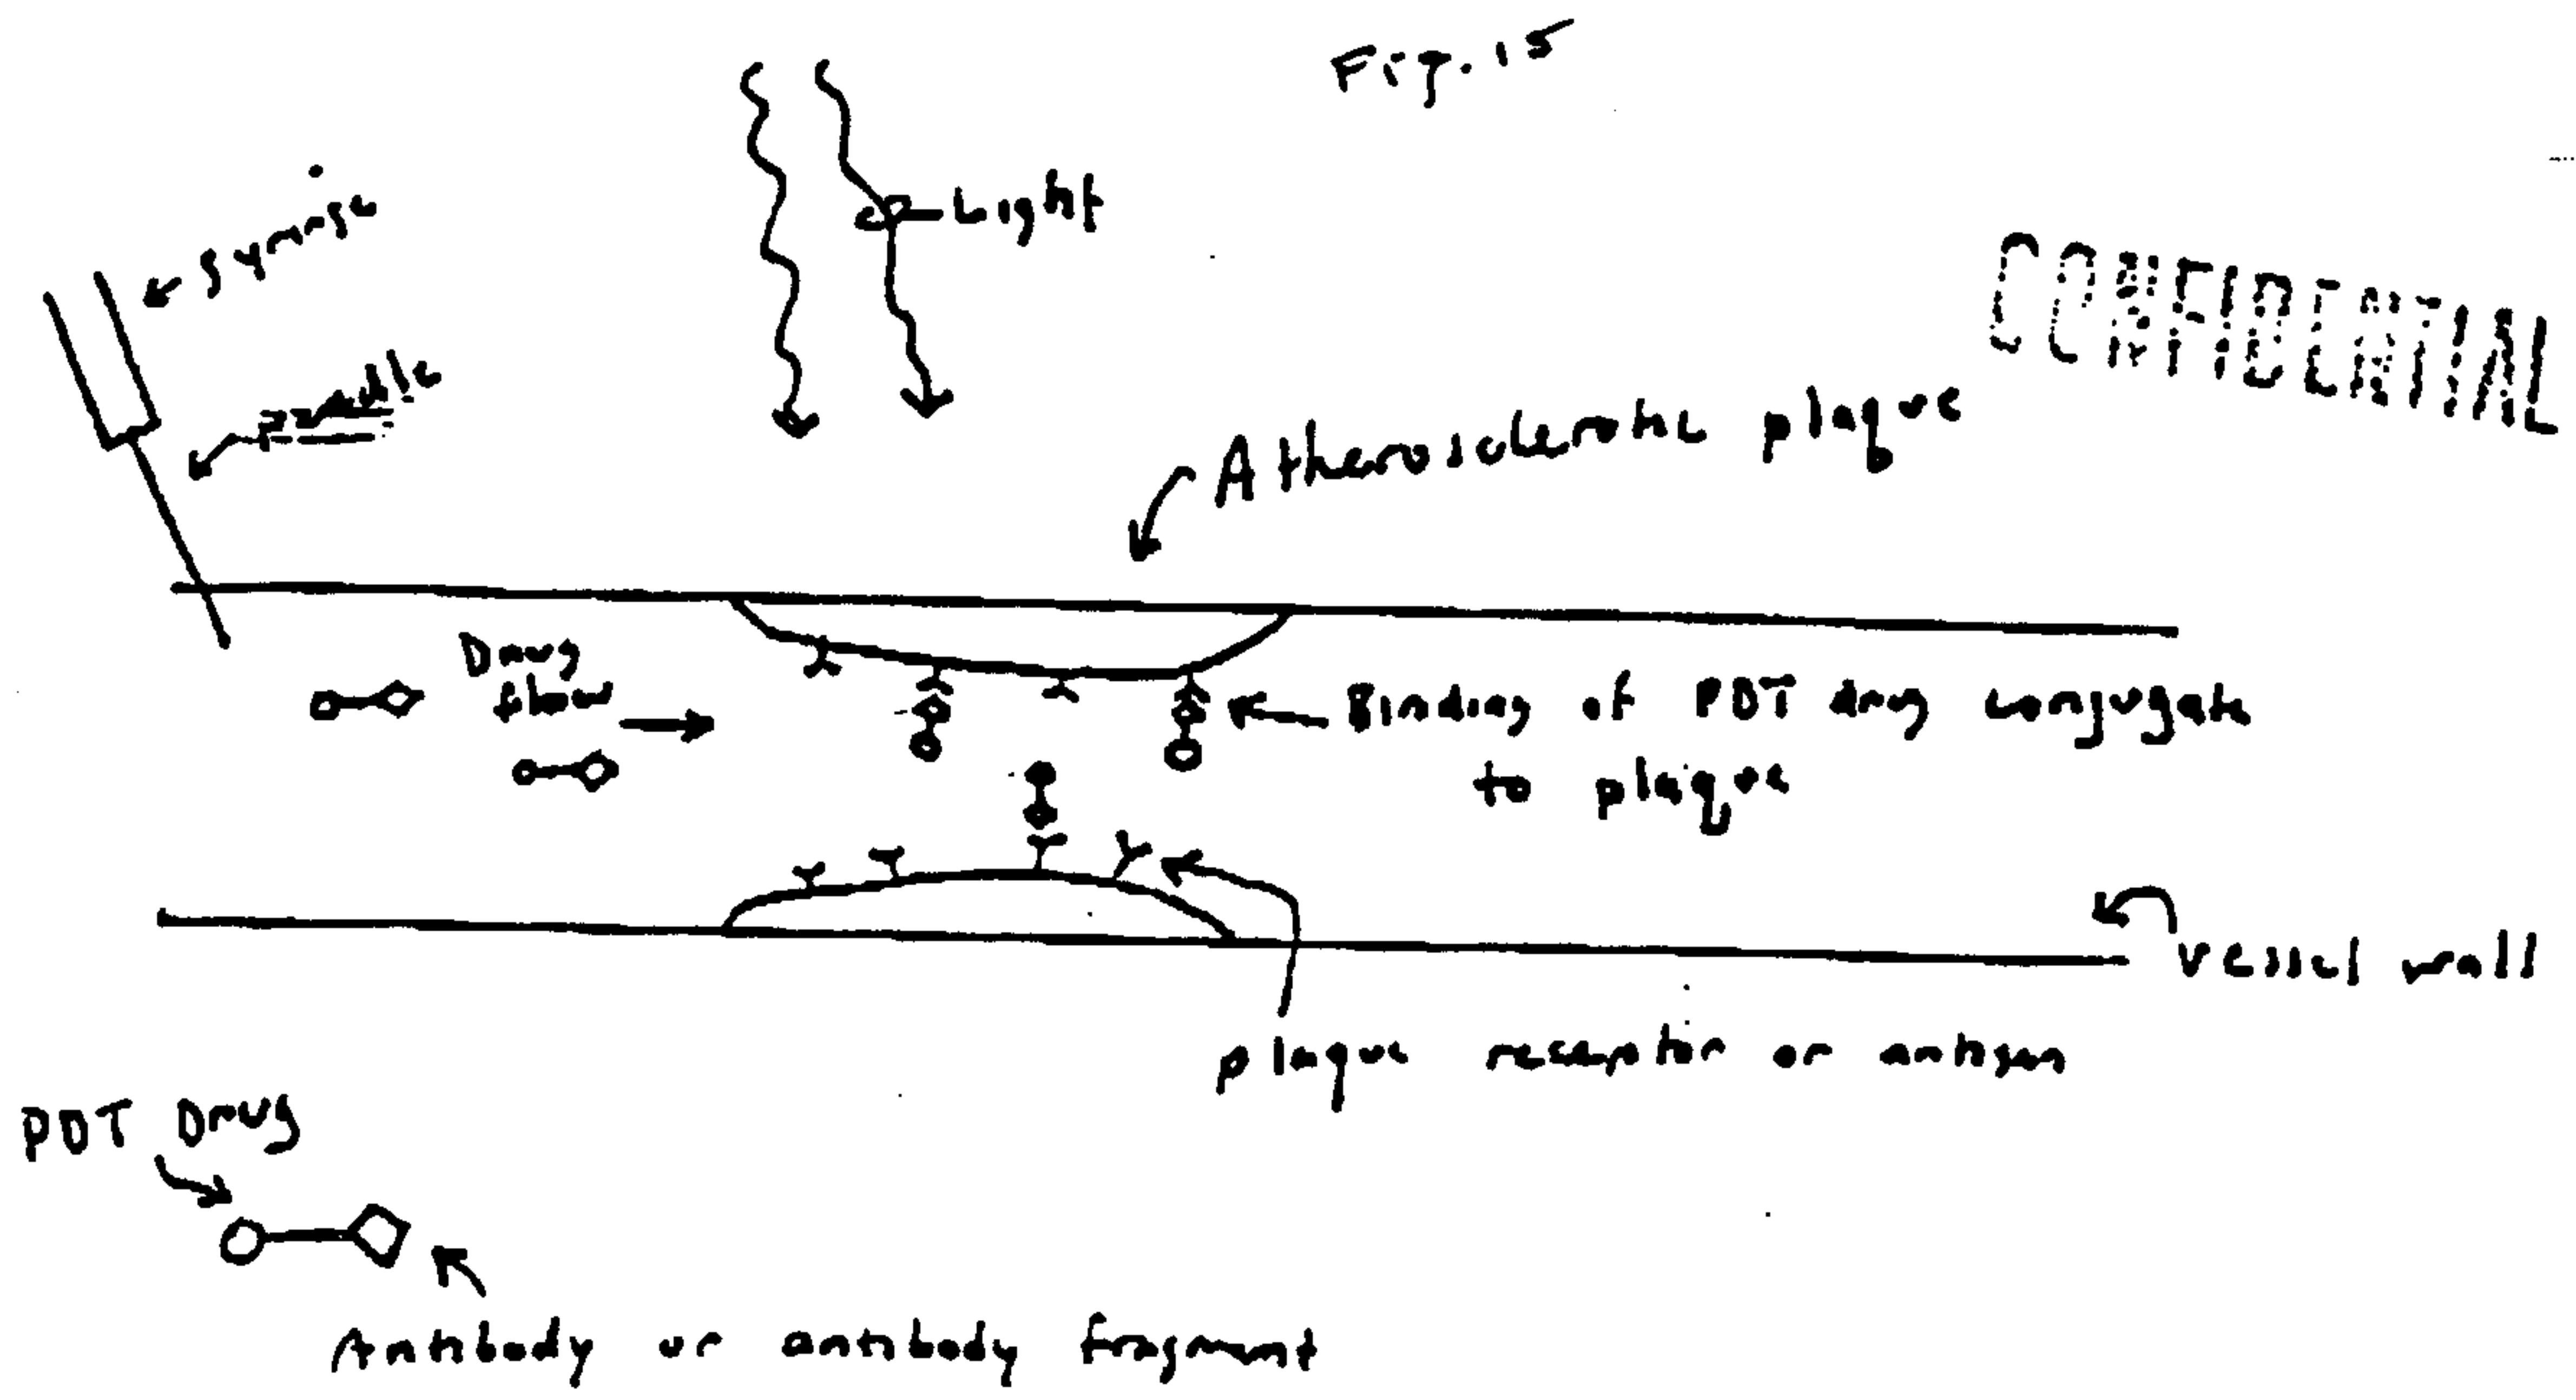 Fig. 15
Syringe
needle
Light
CONFIDENTIAL
Atherosclerotic plaque
Drug
flow
Binding of PDT drug conjugate
to plaque
vessel wall
plaque receptor or antigen
PDT Drug
Antibody or antibody fragment